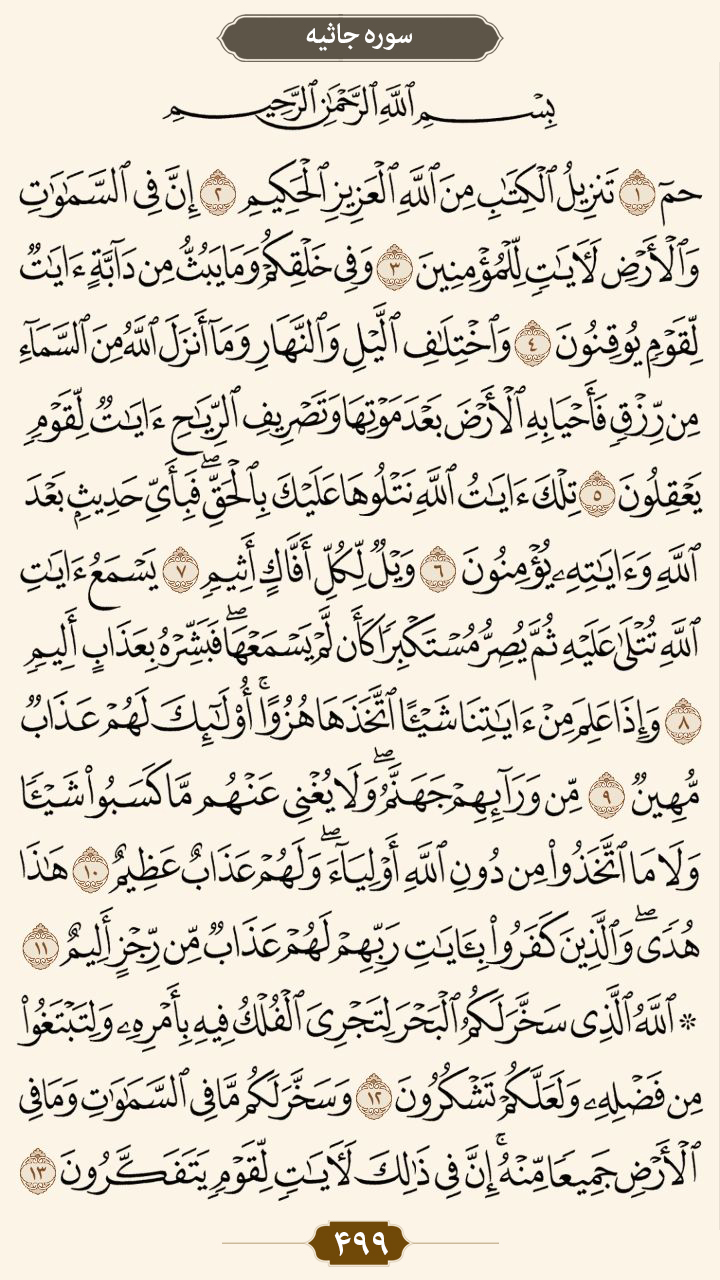 سوره جاثیه
بِسْمِ ٱللَّهِ ٱلرَّحْمَٰنِ ٱلرَّحِيمِ
حمٓ ١ تَنزِيلُ ٱلْكِتَٰبِ مِنَ ٱللَّهِ ٱلْعَزِيزِ ٱلْحَكِيمِ ٢ إِنَّ فِى ٱلسَّمَٰوَٰتِ
وَٱلْأَرْضِ لَءَايَٰتٍ لِّلْمُؤْمِنِينَ ٣ وَفِى خَلْقِكُمْ وَمَا يَبُثُّ مِن دَآبَّةٍ ءَايَٰتٌ
لِّقَوْمٍ يُوقِنُونَ ٤ وَٱخْتِلَٰفِ ٱلَّيْلِ وَٱلنَّهَارِ وَمَآ أَنزَلَ ٱللَّهُ مِنَ ٱلسَّمَآءِ
مِن رِّزْقٍ فَأَحْيَا بِهِ ٱلْأَرْضَ بَعْدَ مَوْتِهَا وَتَصْرِيفِ ٱلرِّيَٰحِ ءَايَٰتٌ لِّقَوْمٍ
يَعْقِلُونَ ٥ تِلْكَ ءَايَٰتُ ٱللَّهِ نَتْلُوهَا عَلَيْكَ بِٱلْحَقِّۖ فَبِأَىِّ حَدِيثٍۭ بَعْدَ
ٱللَّهِ وَءَايَٰتِهِۦ يُؤْمِنُونَ ٦ وَيْلٌ لِّكُلِّ أَفَّاكٍ أَثِيمٍ ٧ يَسْمَعُ ءَايَٰتِ
ٱللَّهِ تُتْلَىٰ عَلَيْهِ ثُمَّ يُصِرُّ مُسْتَكْبِرًا كَأَن لَّمْ يَسْمَعْهَاۖ فَبَشِّرْهُ بِعَذَابٍ أَلِيمٍ
٨ وَإِذَا عَلِمَ مِنْ ءَايَٰتِنَا شَيْـًٔا ٱتَّخَذَهَا هُزُوًاۚ أُو۟لَٰٓئِكَ لَهُمْ عَذَابٌ
مُّهِينٌ ٩ مِّن وَرَآئِهِمْ جَهَنَّمُۖ وَلَا يُغْنِى عَنْهُم مَّا كَسَبُوا۟ شَيْـًٔا
وَلَا مَا ٱتَّخَذُوا۟ مِن دُونِ ٱللَّهِ أَوْلِيَآءَۖ وَلَهُمْ عَذَابٌ عَظِيمٌ ١٠ هَٰذَا
هُدًىۖ وَٱلَّذِينَ كَفَرُوا۟ بِـَٔايَٰتِ رَبِّهِمْ لَهُمْ عَذَابٌ مِّن رِّجْزٍ أَلِيمٌ ١١
۞ ٱللَّهُ ٱلَّذِى سَخَّرَ لَكُمُ ٱلْبَحْرَ لِتَجْرِىَ ٱلْفُلْكُ فِيهِ بِأَمْرِهِۦ وَلِتَبْتَغُوا۟
مِن فَضْلِهِۦ وَلَعَلَّكُمْ تَشْكُرُونَ ١٢ وَسَخَّرَ لَكُم مَّا فِى ٱلسَّمَٰوَٰتِ وَمَا فِى
ٱلْأَرْضِ جَمِيعًا مِّنْهُۚ إِنَّ فِى ذَٰلِكَ لَءَايَٰتٍ لِّقَوْمٍ يَتَفَكَّرُونَ ١٣
۴۹۹